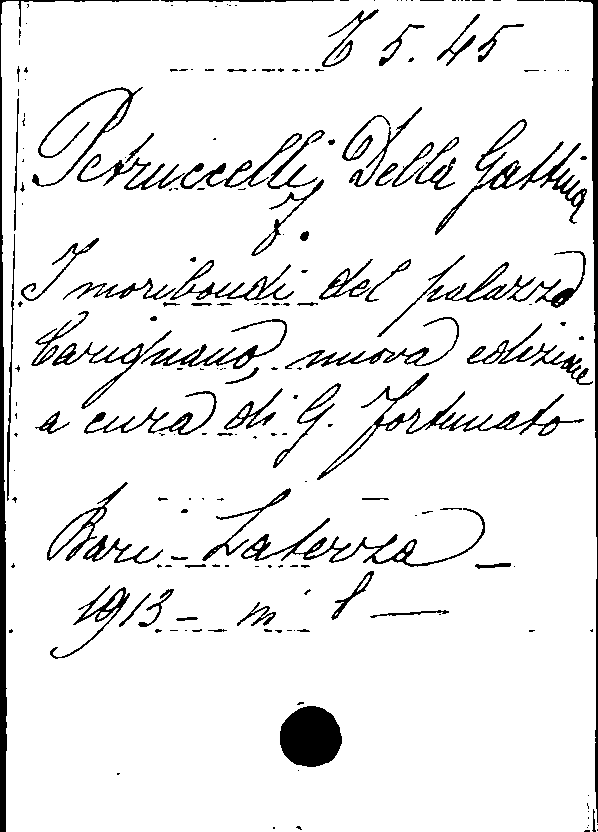 5.45
Petruccelli Della Gattina
F.
I moribondi del palazzo
Carignano, nuova edizione
a cura di G. Fortunato
Bari - Laterza -
1913 - in 8 —